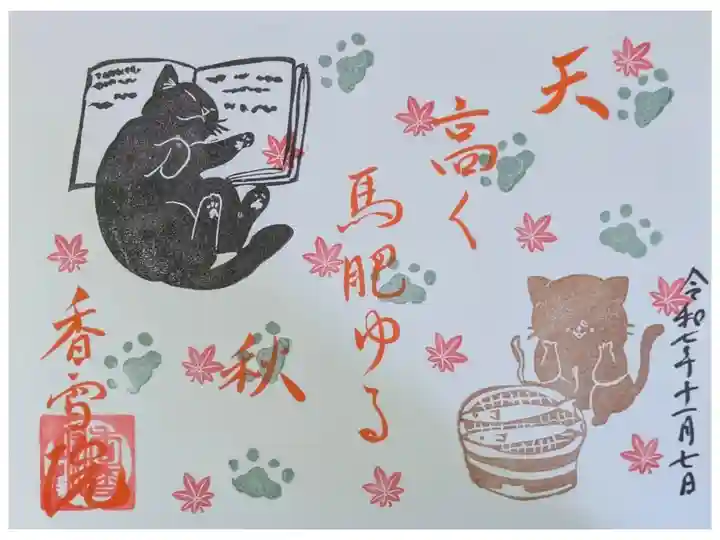 天
高く
馬肥ゆる
秋
香雪院
令和七年十一月七日